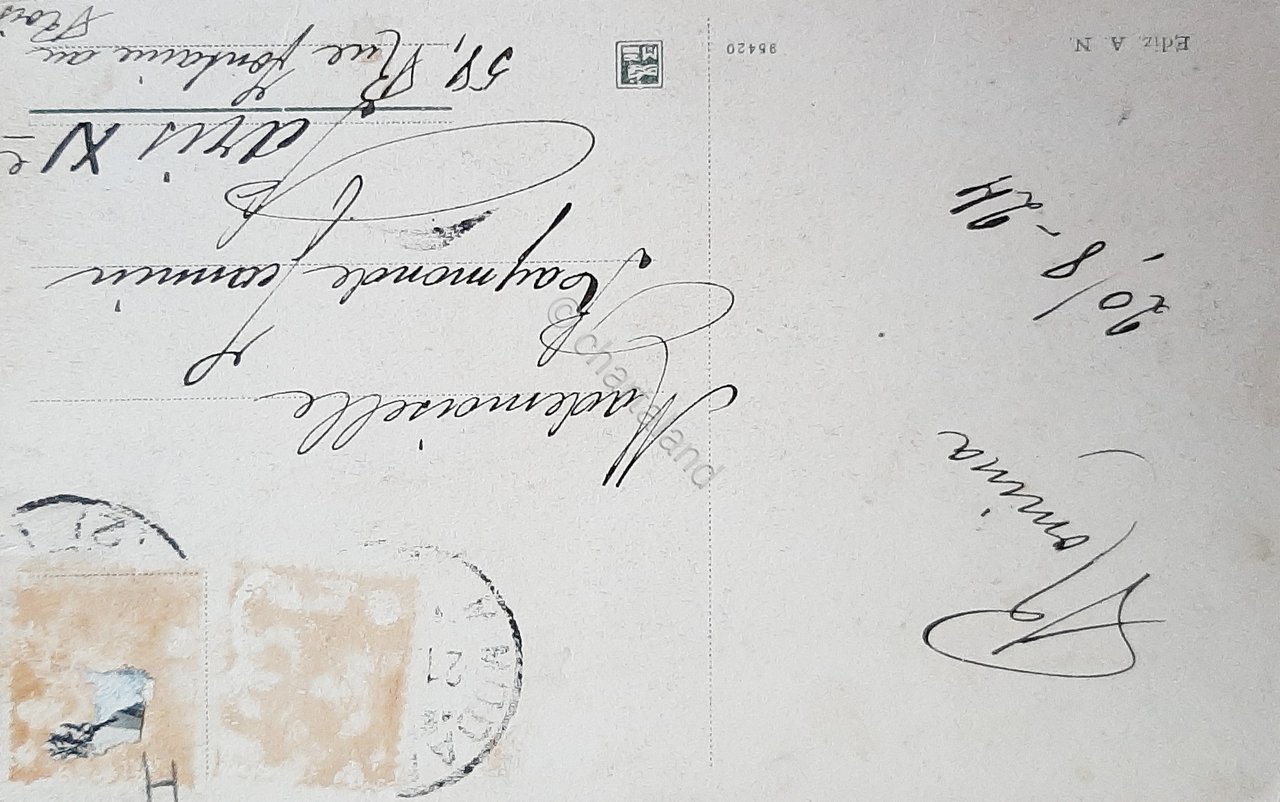 Ediz. A. N.
95420
20/8-24
Romina
Mademoiselle
Raymonde Jeannin
Paris XIe
54, Rue Fontaine au
21
H
© charta.land